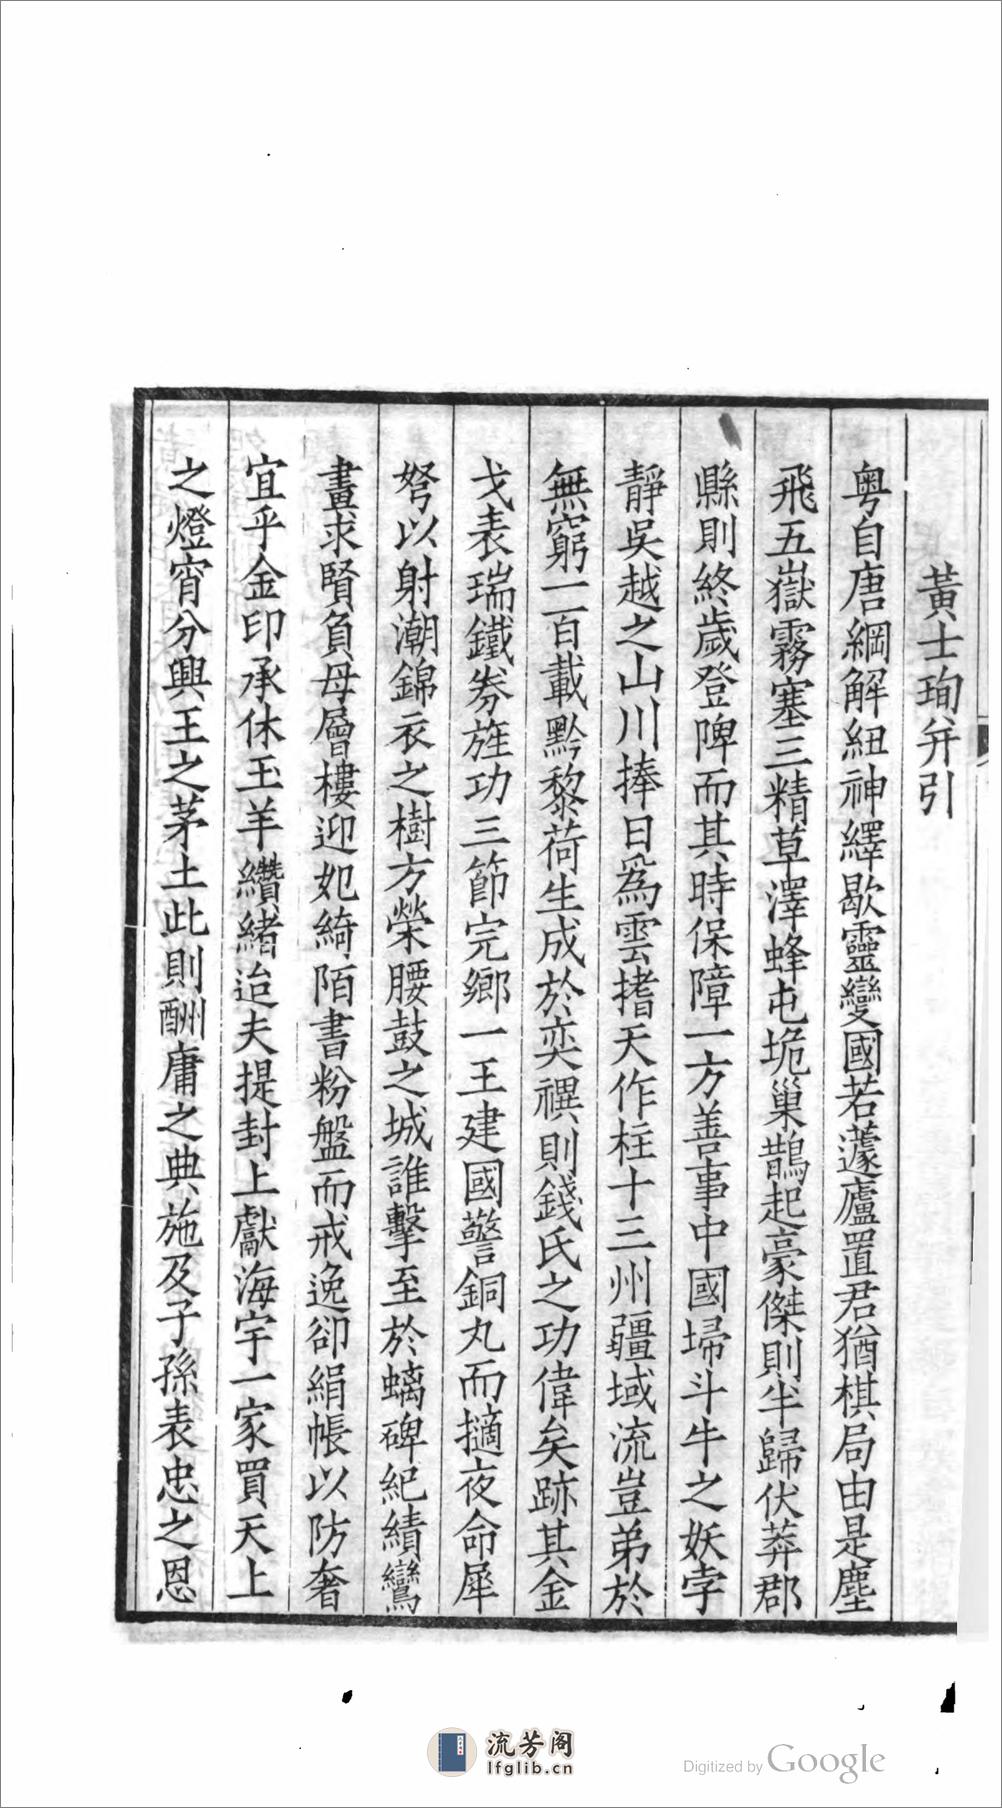 黃士珣并引
粤自唐綱解紐神繹歇靈變國若蘧廬置君猶棋局由是塵
飛五嶽霧塞三精草澤蜂屯垝巢鵲起豪傑則半歸伏莽郡
縣則終歲登陴而其時保障一方善事中國埽斗牛之妖孛
靜吳越之山川捧日爲雲撍天作柱十三州疆域流豈弟於
無窮一百載黔黎荷生成於奕禩則錢氏之功偉矣跡其金
戈表瑞鐵券旌功三節完鄉一王建國警銅丸而擿夜命犀
弩以射潮錦衣之樹方榮腰鼓之城誰擊至於螭碑紀績鸞
畫求賢負母層樓迎妃綺陌書粉盤而戒逸卻絹帳以防奢
宜乎金印承休玉羊纘緒迨夫提封上獻海宇一家買天上
之燈宵分興王之茅土此則酬庸之典施及子孫表忠之恩
流芳阁
lfglib.cn
Digitized by Google